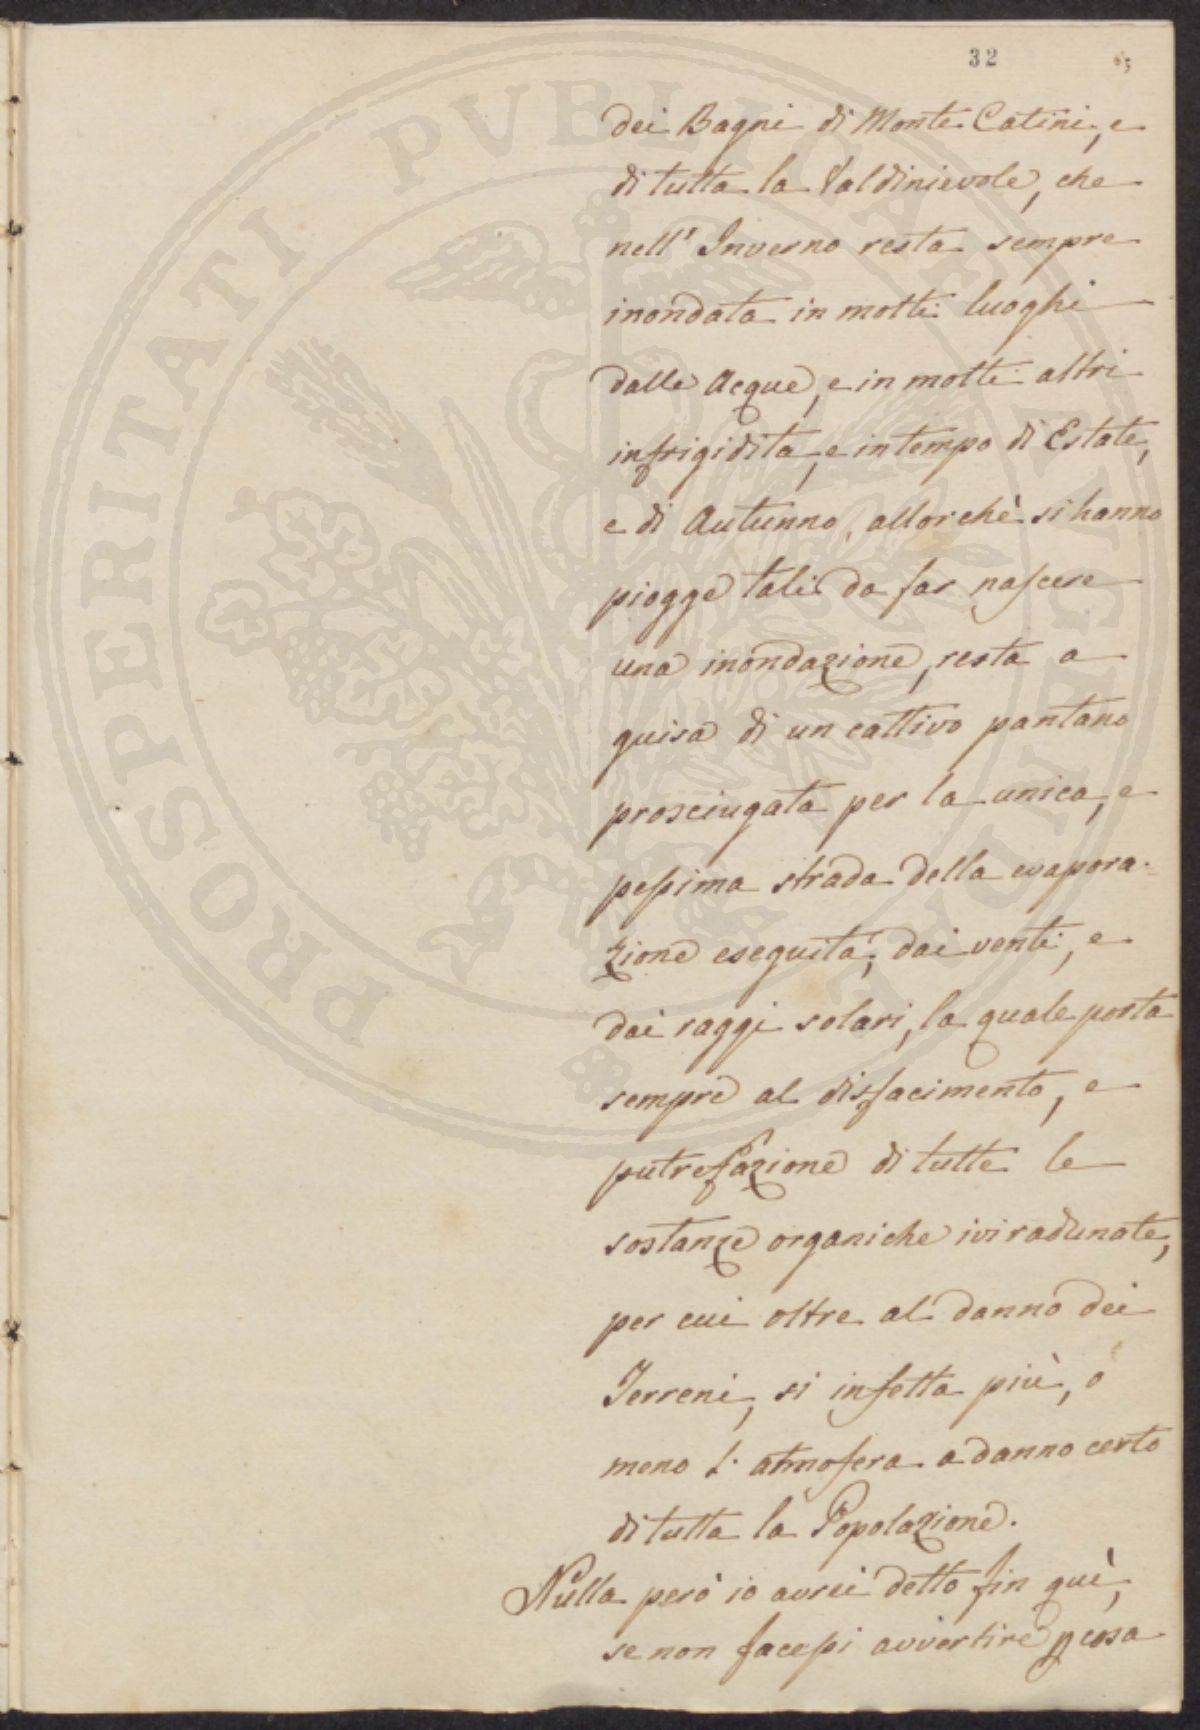 32 65
dei Bagni di Monte Catini, e
di tutta la Valdinievole, che
nell' Inverno resta sempre
inondata in molti luoghi
dalle Acque, e in molti altri
infrigidita, e in tempo di Estate,
e di Autunno, allorchè si hanno
piogge tali da far nascere
una inondazione, resta a
guisa di un cattivo pantano
prosciugata per la unica, e
pessima strada della evapora-
zione eseguita, dai venti, e
dai raggi solari, la quale porta
sempre al disfacimento, e
putrefazione di tutte le
sostanze organiche ivi radunate,
per cui oltre al danno dei
Terreni, si infetta più, o
meno l'atmosfera a danno certo
di tutta la Popolazione.
Nulla però io avrei detto fin quì,
se non facessi avvertire cosa
PROSPERITATI PVBLICAE AVGENDAE